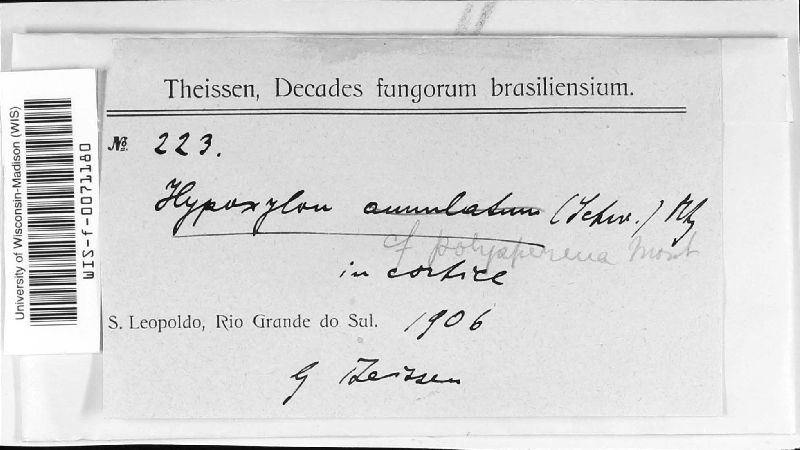 Theissen, Decades fungorum brasiliensium.
№ 223.
Hypoxylon annulatum (Schw.)
cf polysperma Mont
in cortice
S. Leopoldo, Rio Grande do Sul. 1906
Theissen
University of Wisconsin-Madison (WIS)
WIS-f-0071180